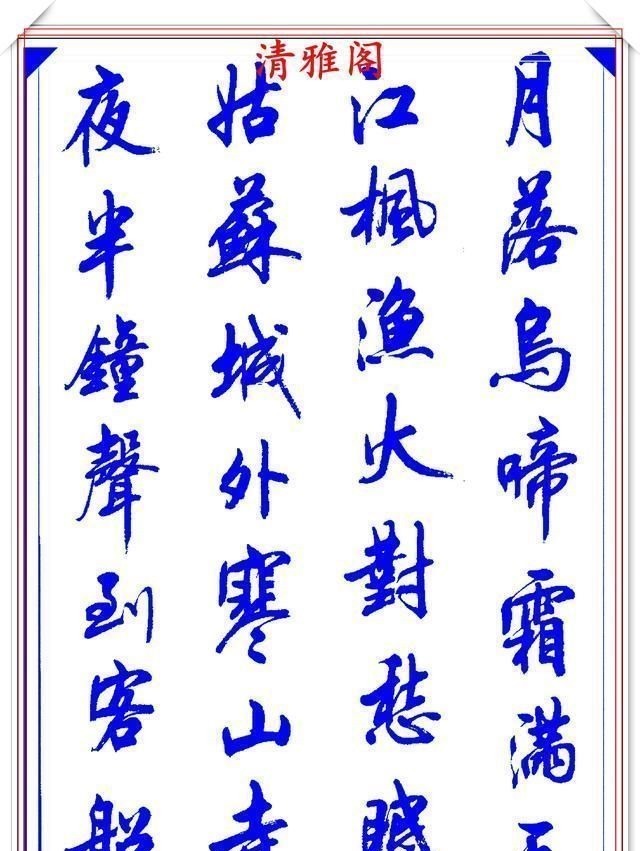 清雅阁
月落烏啼霜滿天
江楓漁火對愁眠
姑蘇城外寒山寺
夜半鐘聲到客船